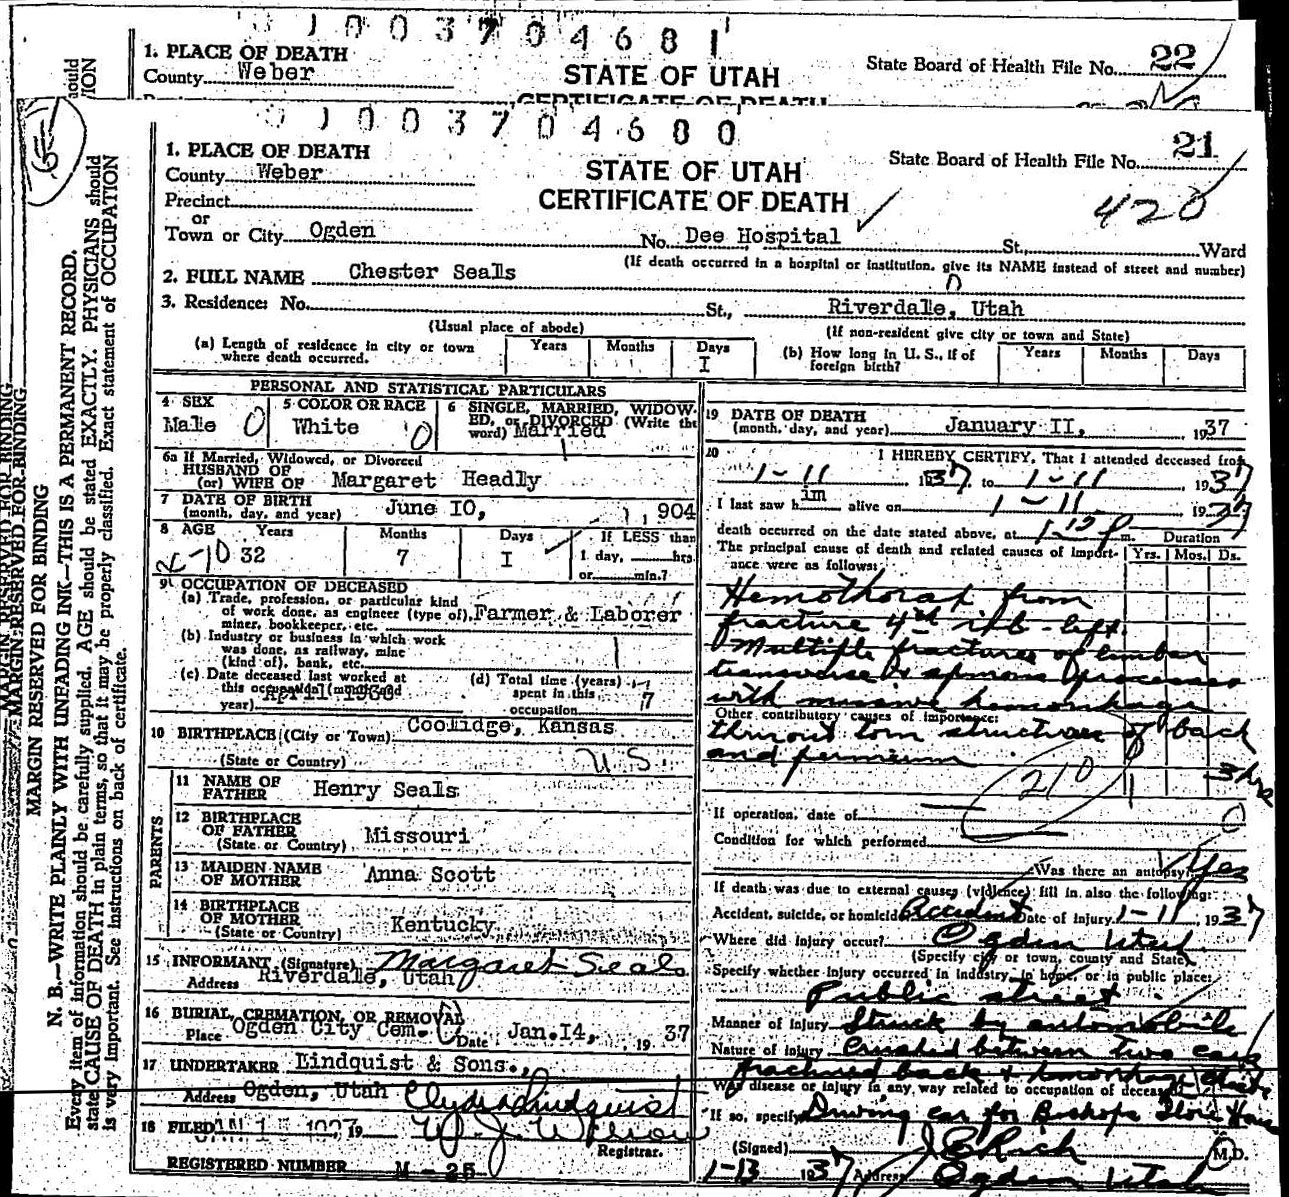 1003704681
1. PLACE OF DEATH
County Weber
STATE OF UTAH
State Board of Health File No. 22
CERTIFICATE OF DEATH
1003704680
1. PLACE OF DEATH
County Weber
STATE OF UTAH
State Board of Health File No. 21
Precinct
CERTIFICATE OF DEATH
420
or
Town or City Ogden No. Dee Hospital St., Ward
(If death occurred in a hospital or institution, give its NAME instead of street and number)
2. FULL NAME Chester Seals
3. Residence: No. St., Riverdale, Utah
(Usual place of abode) (If non-resident give city or town and State)
(a) Length of residence in city or town where death occurred. Years Months Days I
(b) How long in U. S., if of foreign birth? Years Months Days
PERSONAL AND STATISTICAL PARTICULARS
4 SEX Male 0
5 COLOR OR RACE White 0
6 SINGLE, MARRIED, WIDOWED, or DIVORCED (Write the word) Married
6a If Married, Widowed, or Divorced
HUSBAND OF
(or) WIFE OF Margaret Headly
7 DATE OF BIRTH
(month, day, and year) June I0, 1904
8 AGE Years Months Days If LESS than
32 7 I 1 day, hrs.
or min.?
9 OCCUPATION OF DECEASED
(a) Trade, profession, or particular kind
of work done, as engineer (type of), Farmer & Laborer
miner, bookkeeper, etc.
(b) Industry or business in which work
was done, as railway, mine
(kind of), bank, etc.
(c) Date deceased last worked at
this occupation (month and
year) April 1936
(d) Total time (years)
spent in this
occupation 7
10 BIRTHPLACE (City or Town) Coolidge, Kansas
(State or Country) U.S.
PARENTS
11 NAME OF FATHER Henry Seals
12 BIRTHPLACE OF FATHER
(State or Country) Missouri
13 MAIDEN NAME OF MOTHER Anna Scott
14 BIRTHPLACE OF MOTHER
(State or Country) Kentucky
15 INFORMANT (Signature) Margaret Seals
Address Riverdale, Utah
16 BURIAL, CREMATION, OR REMOVAL
Place Ogden City Cem. Date Jan. I4, 19 37
17 UNDERTAKER Lindquist & Sons.,
Address Ogden, Utah Clyde Lindquist
18 FILED JAN 1 5 1937, 19 W. J. Wilson
Registrar.
REGISTERED NUMBER M - 25
19 DATE OF DEATH
(month, day, and year) January II, 1937
20 I HEREBY CERTIFY, That I attended deceased from
1-11 1937, to 1-11 1937
I last saw him alive on 1-11 1937
death occurred on the date stated above, at m. Duration
The principal cause of death and related causes of importance were as follows: Yrs. Mos. Ds.
Hemothorax from
fracture 4th rib - left.
Multiple fractures of lumbar
transverse & spinous processes
with massive hemorrhage
Other contributory causes of importance:
thruout torn structures of back
and perineum
210
3 hrs
If operation, date of 0
Condition for which performed
Was there an autopsy? Yes
If death was due to external causes (violence) fill in also the following:
Accident, suicide, or homicide Accident Date of injury 1-11 1937
Where did injury occur? Ogden Utah
(Specify city or town, county and State)
Specify whether injury occurred in industry, in home, or in public place:
Public street
Manner of injury Struck by automobile
Nature of injury Crushed between two cars
fractured back & hemorrhage chest
Was disease or injury in any way related to occupation of deceased?
If so, specify Driving car for Bishops Store House
(Signed) J E Rich M.D.
1-13 1937 Address Ogden Utah
MARGIN RESERVED FOR BINDING
N. B.—WRITE PLAINLY WITH UNFADING INK—THIS IS A PERMANENT RECORD.
Every item of information should be carefully supplied. AGE should be stated EXACTLY. PHYSICIANS should
state CAUSE OF DEATH in plain terms, so that it may be properly classified. Exact statement of OCCUPATION
is very important. See instructions on back of certificate.